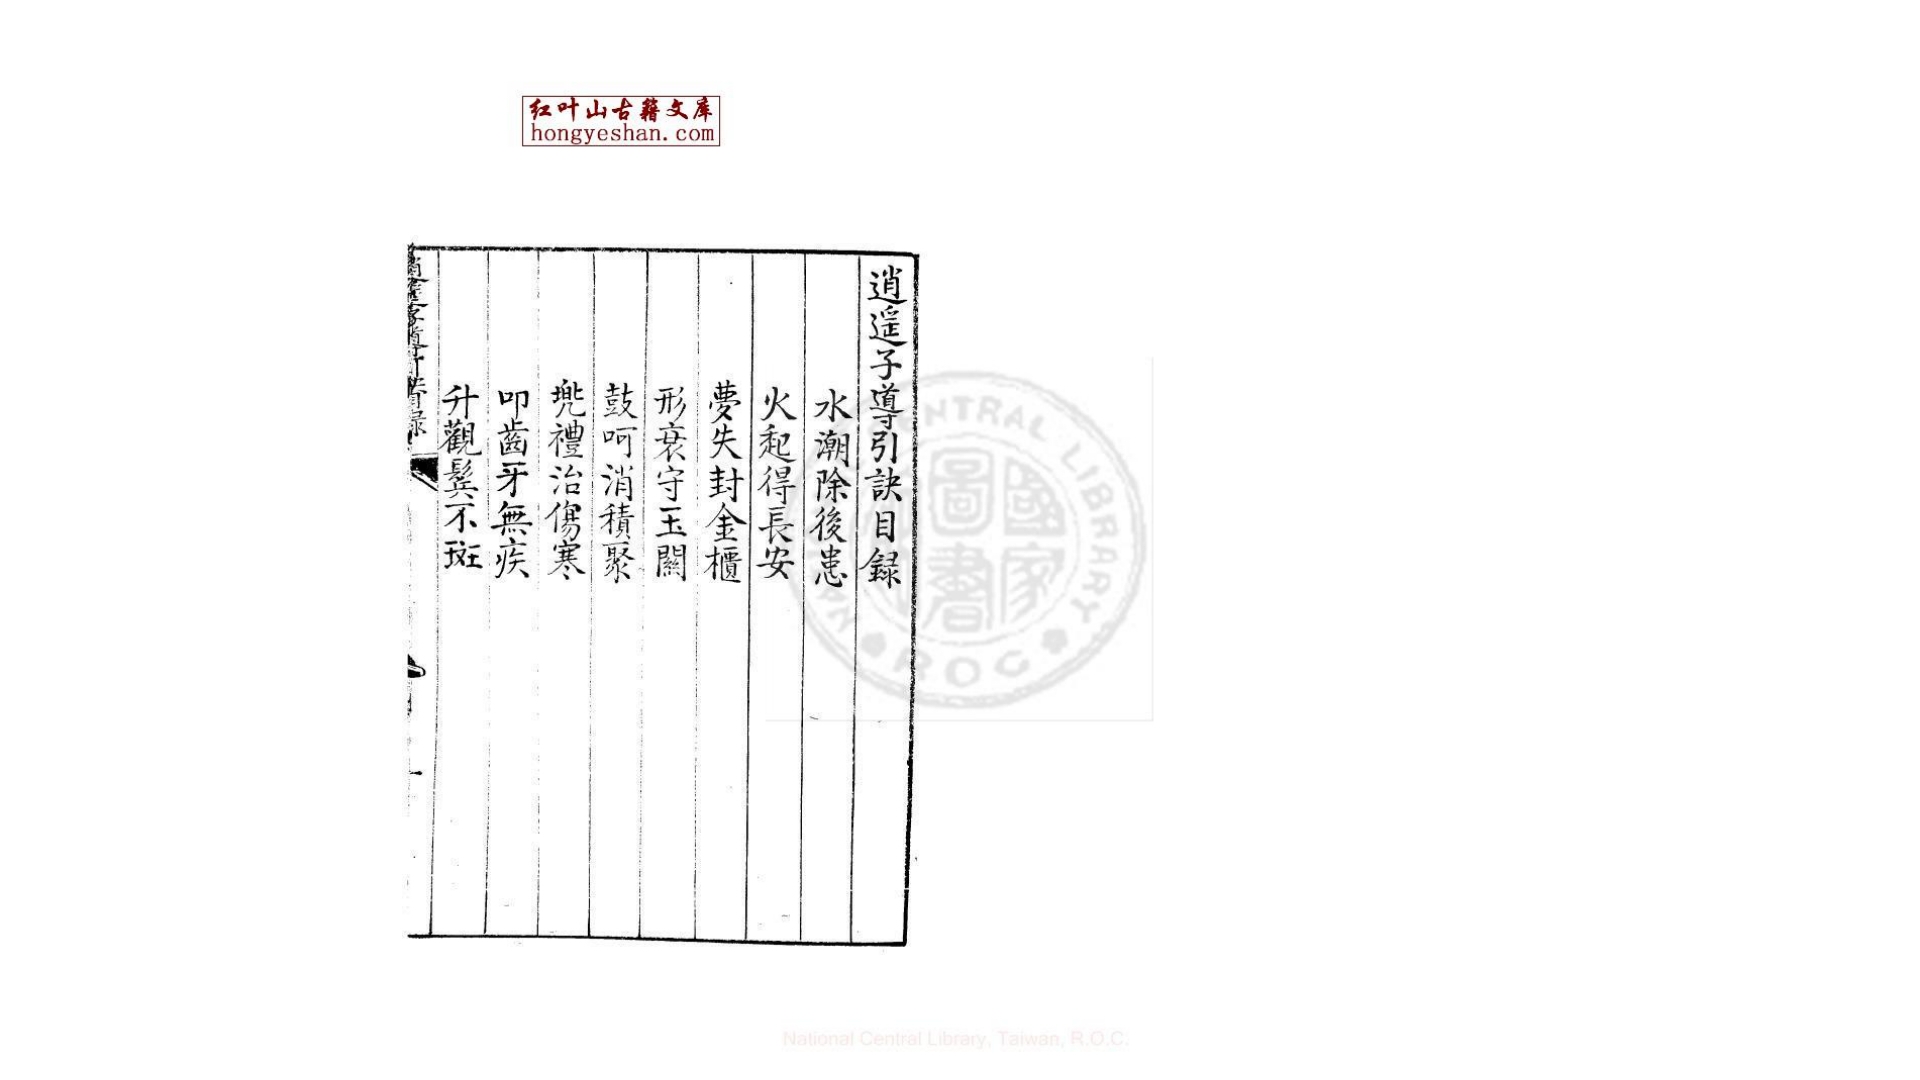 红叶山古籍文库
hongyeshan.com
逍遥子導引訣目録
水潮除後患
火起得長安
夢失封金櫃
形衰守玉關
鼓呵消積聚
兠禮治傷寒
叩齒牙無疾
升觀鬓不斑
一
CENTRAL LIBRARY
ROC
國家圖書
National Central Library, Taiwan, R.O.C.